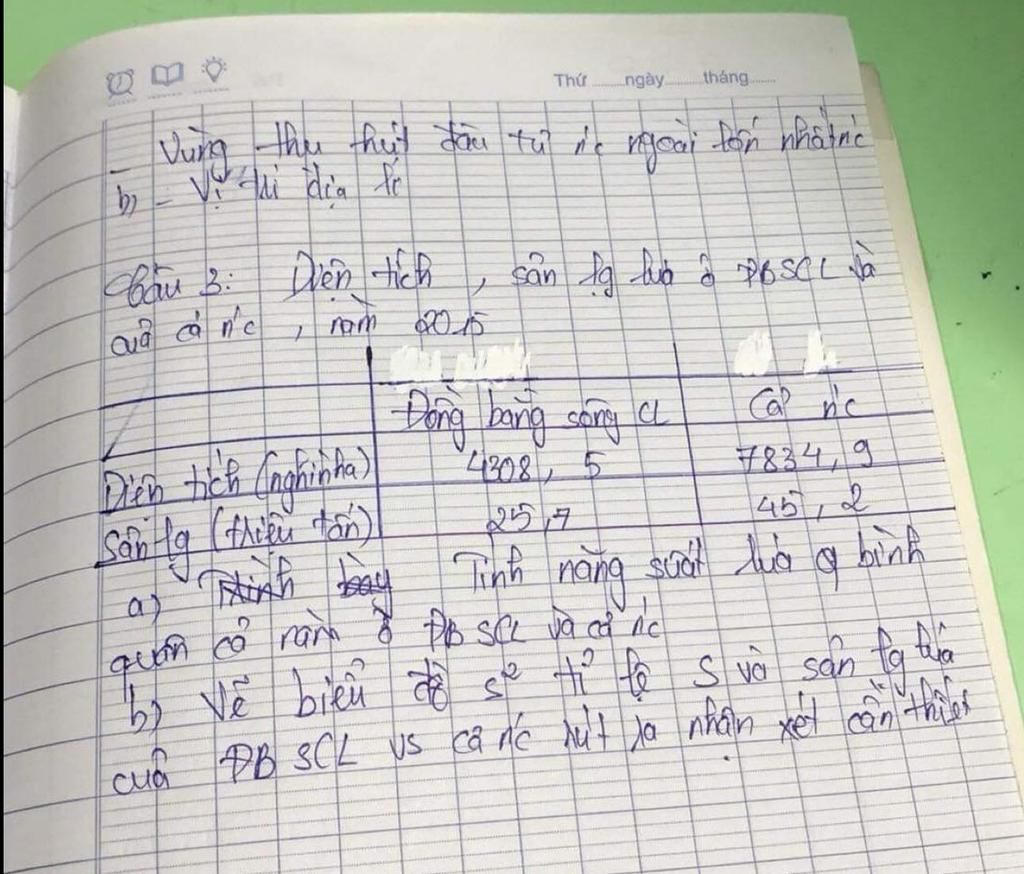 Thứ ........ngày........tháng........
- Vùng thu hút đầu tư n'c ngoài lớn nhất n'c
b) - Vị trí địa lí
Câu 3: Diện tích , sản lg lúa ở ĐBSCL và
của cả n'c , năm 2015
Đồng bằng sông CL Cả n'c
Diện tích (nghìn ha) 4308, 5 7834, 9
Sản lg (triệu tấn) 25,7 45, 2
a) Tính năng suất lúa bình
quân cả năm ở ĐB SCL và cả n'c
b) Vẽ biểu đồ s² tỉ lệ S và sản lg lúa
của ĐB SCL vs cả n'c rút ra nhận xét cần thiết